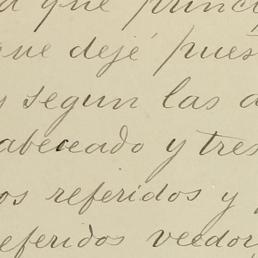 a que princi
que dejé pues
y segun las a
abeceado y tres
os referidos y
referidos veedor